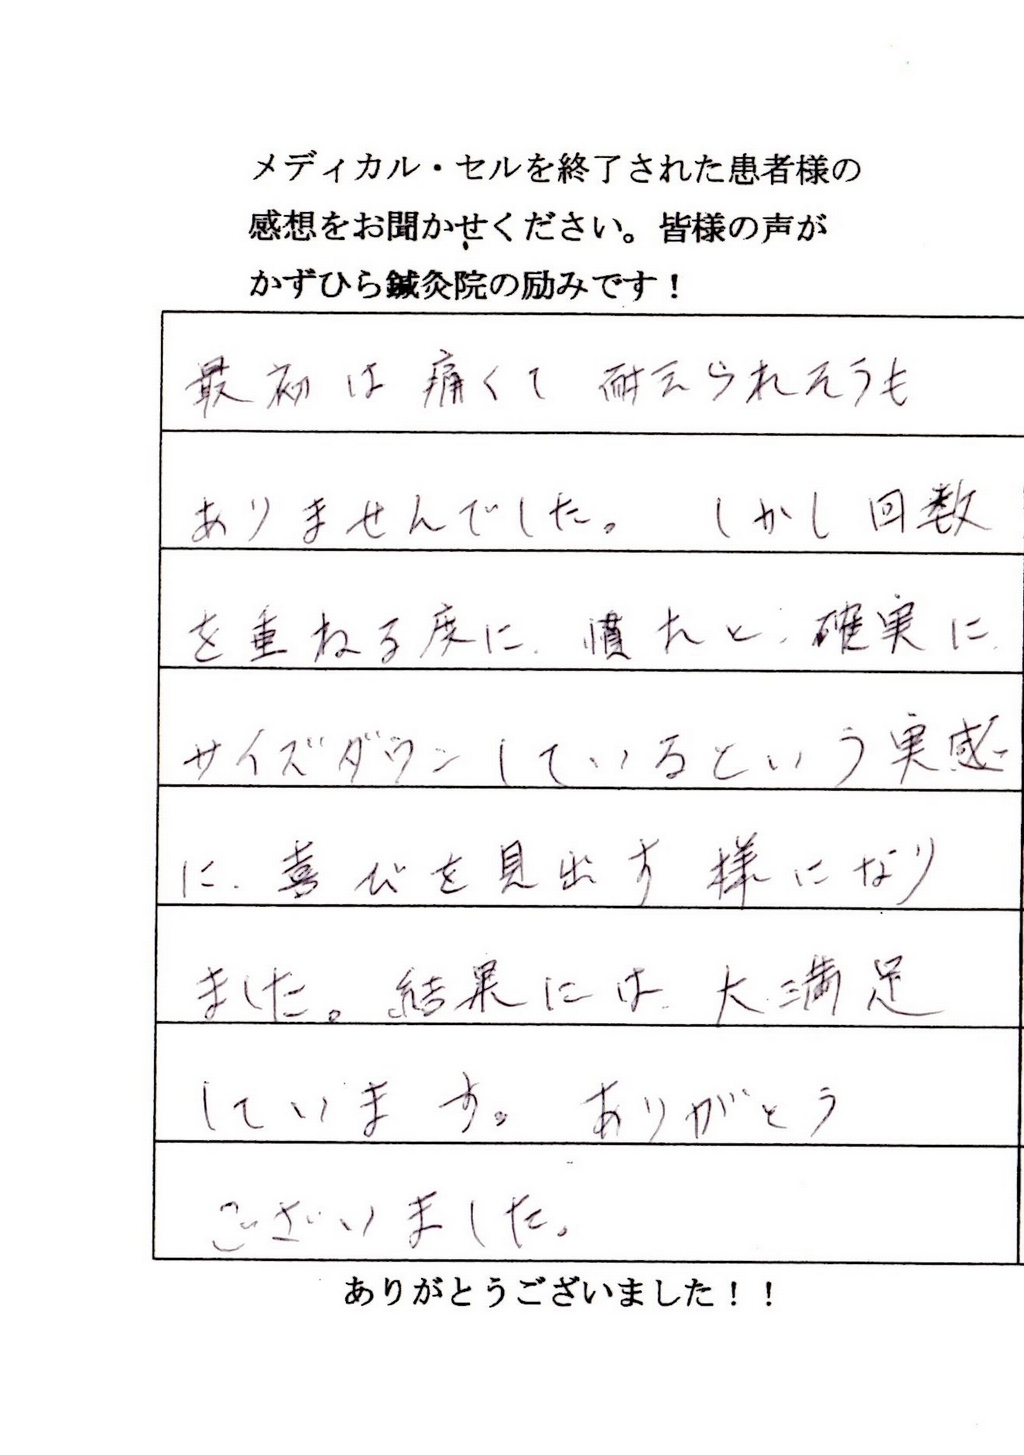 メディカル・セルを終了された患者様の
感想をお聞かせください。皆様の声が
かずひら鍼灸院の励みです！
最初は痛くて耐えられそうも
ありませんでした。しかし回数
を重ねる度に、慣れと、確実に
サイズダウンしているという実感
に、喜びを見出す様になり
ました。結果には、大満足
しています。ありがとう
ございました。
ありがとうございました！！